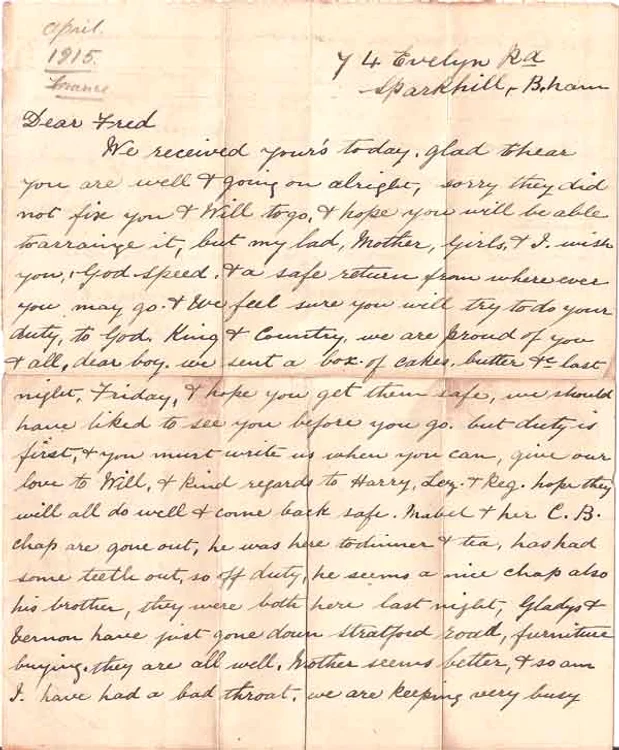 April.
1915.
France
74 Evelyn Rd
Sparkhill, B.ham
Dear Fred
We received your's today. glad to hear
you are well & going on alright, sorry they did
not fix you & Will to go, & hope you will be able
to arrainge it, but my lad, Mother, Girls, & I. wish
you, God speed. & a safe return from where ever
you may go. & We feel sure you will try to do your
duty, to God. King & Country. we are proud of you
& all, dear boy. we sent a box of cakes. butter &c last
night, Friday, & hope you get them safe, we should
have liked to see you before you go. but duty is
first, & you must write us when you can, give our
love to Will, & kind regards to Harry, & Reg. hope they
will all do well & come back safe. Mabel & her C. B.
chap are gone out, he was here to dinner & tea, has had
some teeth out, so off duty, he seems a nice chap also
his brother, they were both here last night, Gladys &
Vernon have just gone down Stratford road, furniture
buying. they are all well. Mother seems better, & so am
I. have had a bad throat. we are keeping very busy